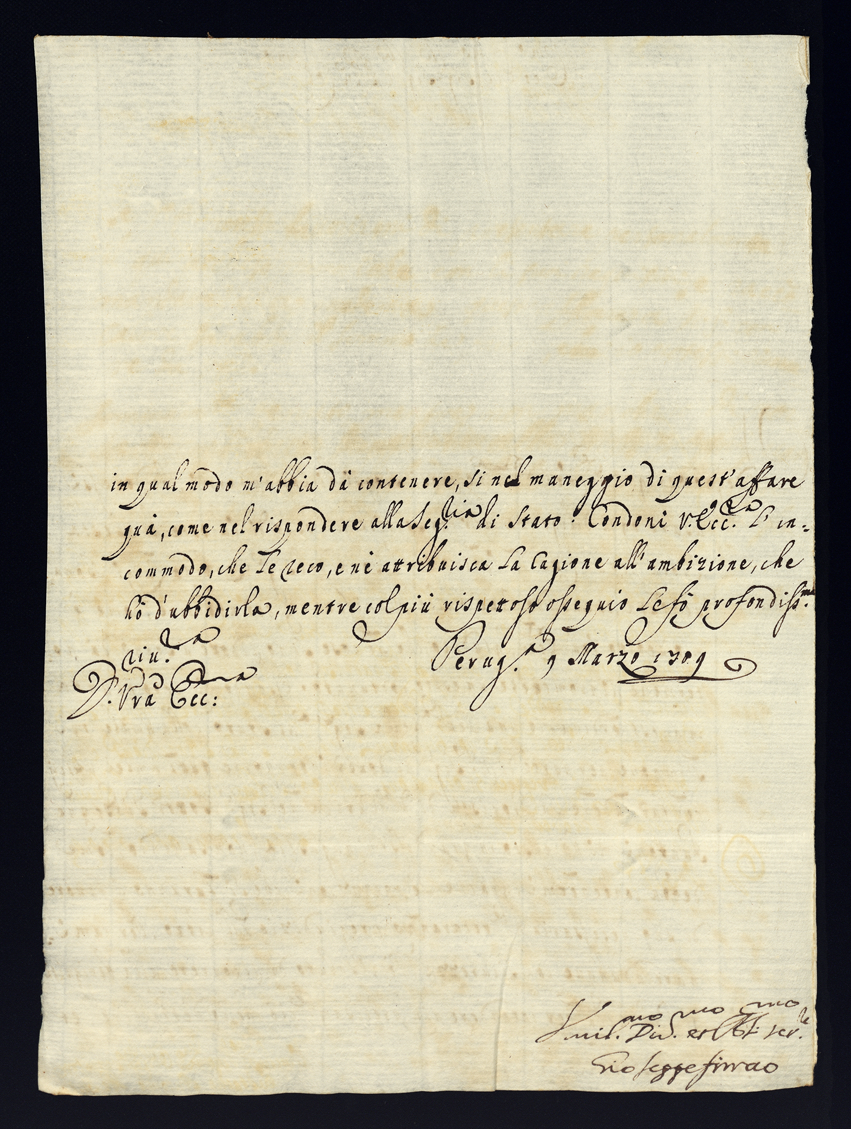 in qual modo m'abbia dà contenere, si nel maneggio di quest'affare
quà, come nel rispondere alla Seg.ria di Stato. Condoni V. Ecc.za l'in-
commodo, che le reco, e nè attribuisca la cagione all'ambizione, che
hò d'ubbidirla, mentre col più rispettoso ossequio le fò profondiss.ma
riu.za
Perug.a 9 Marzo 1709
D. Vrã Ecc:za
Vmil.mo Div.mo et Obl.mo ser.re
Gioseppe firrao